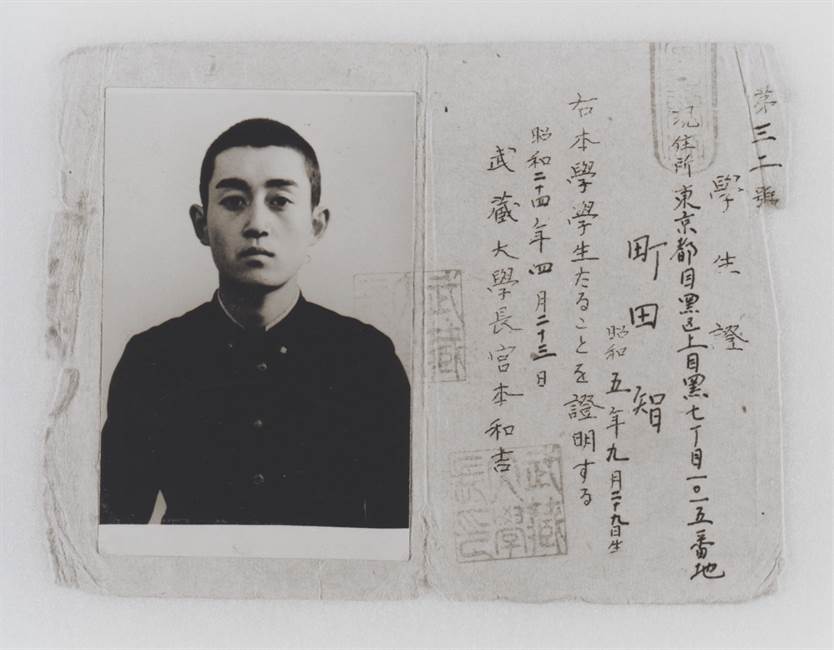 第三二號
學生證
現住所 東京都目黑区上目黑七丁目一〇一五番地
町田智
昭和五年九月二十九日生
右本學學生たることを證明する
昭和二十四年四月二十三日
武藏大學長宮本和吉
武藏
武藏大學